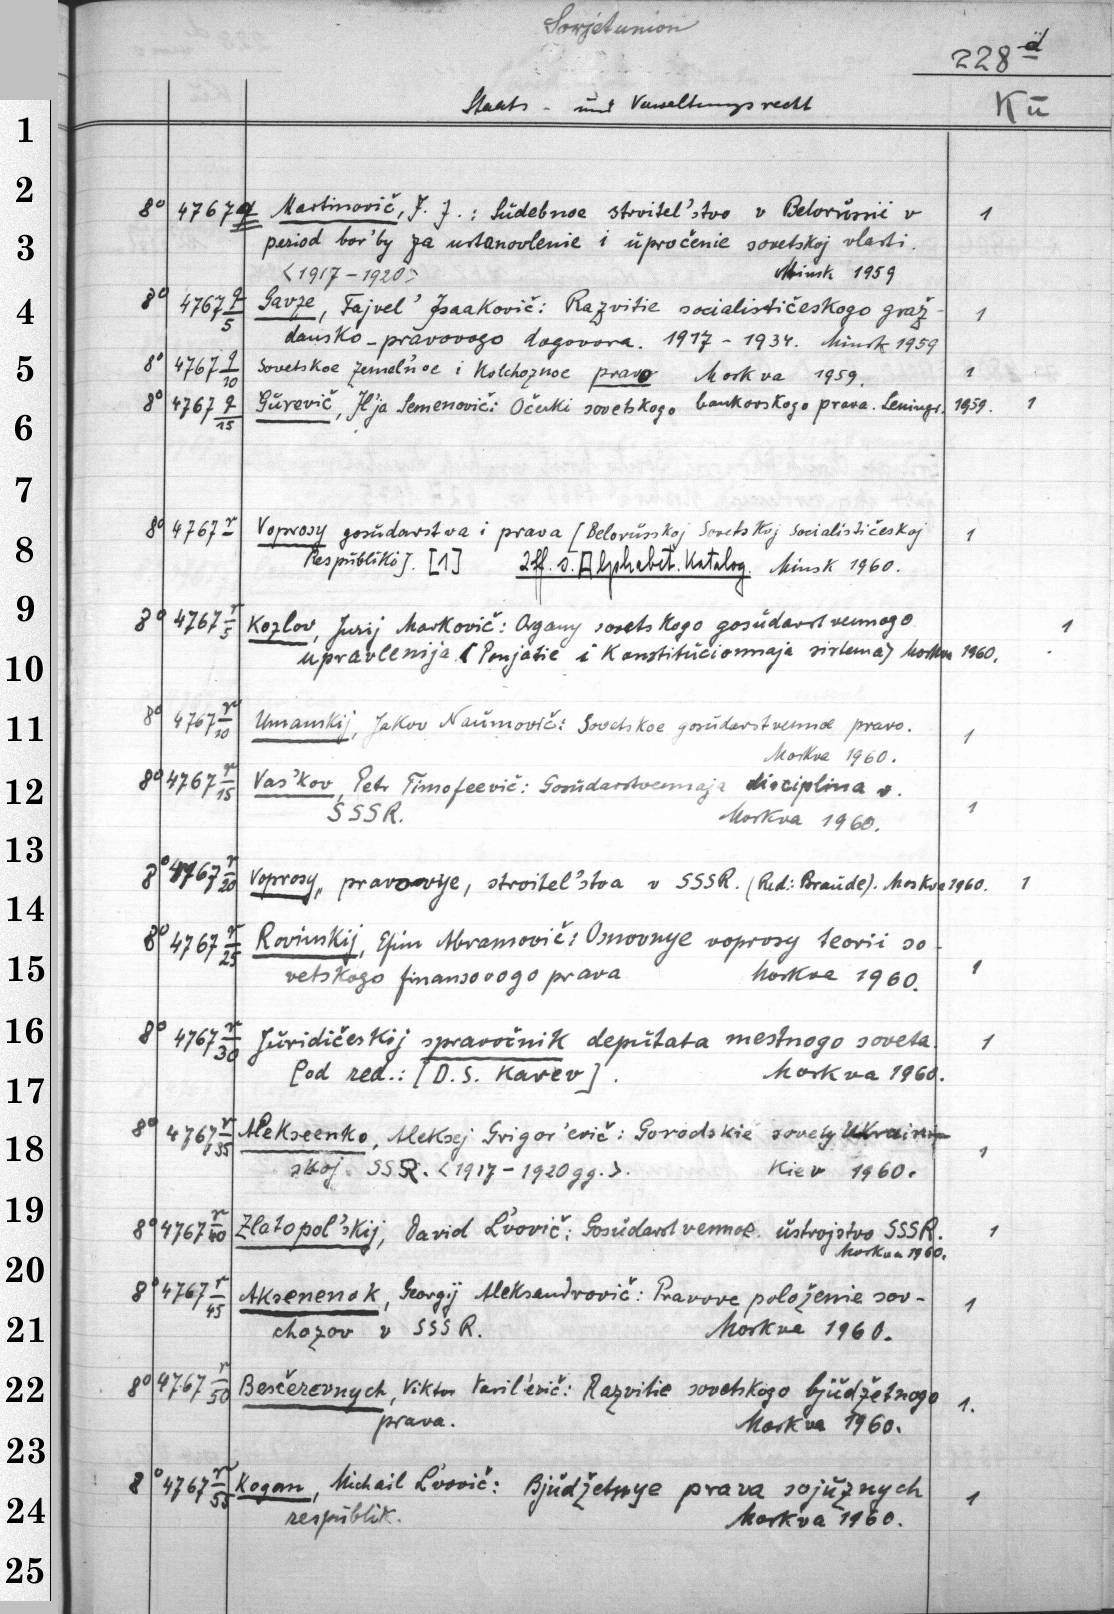 Sowjetunion
228 d
Staats- und Verwaltungsrecht Kü
1
2
8° 4767 q Martinovič, J. J.: Sŭdebnoe stroitel'stvo v Belorŭssii v 1
3 period bor'by za ustanovlenie i ŭpročenie sovetskoj vlasti.
<1917-1920> Minsk 1959
4 8° 4767 q/5 Gavze, Fajvel' Isaakovič: Razvitie socialističeskogo graž- 1
dansko-pravovogo dogovora. 1917-1934. Minsk 1959
5 8° 4767 q/10 Sovetskoe zemel'noe i kolchoznoe pravo Moskva 1959. 1
8° 4767 q/15 Gŭrevič, Il'ja Semenovič: Očerki sovetskogo bankovskogo prava. Leningr. 1959. 1
6
7
8° 4767 r Voprosy gosŭdarstva i prava [Belorŭsskoj Sovetskoj Socialističeskoj 1
8 Respŭbliki]. [1] 2ff. s. Alphabet. Katalog. Minsk 1960.
9 8° 4767 r/5 Kozlov, Jurij Markovič: Organy sovetskogo gosŭdarstvennogo 1
10 upravlenija <Ponjatie i Konstitŭcionnaja sistema> Moskva 1960.
11 8° 4767 r/10 Umanskij, Jakov Naŭmovič: Sovetskoe gosŭdarstvennoe pravo. 1
Moskva 1960.
12 8° 4767 r/15 Vas'kov, Petr Timofeevič: Gosŭdarstvennaja disciplina v. 1
SSSR. Moskva 1960.
13
8° 4767 r/20 Voprosy, pravovye, stroitel'stva v SSSR. (Red: Braŭde). Moskva 1960. 1
14
8° 4767 r/25 Rovinskij, Efim Abramovič: Osnovnye voprosy teorii so- 1
15 vetskogo finansovogo prava Moskva 1960.
16 8° 4767 r/30 Jŭridičeskij spravočnik depŭtata mestnogo soveta. 1
17 Pod red.: [D.S. Karev]. Moskva 1960.
18 8° 4767 r/35 Alekseenko, Aleksej Grigor'evič: Gorodskie sovety Ukrain- 1
skoj SSR. <1917-1920 gg.>. Kiev 1960.
19 8° 4767 r/40 Zlatopol'skij, David L'vovič: Gosŭdarstvennoe ŭstrojstvo SSSR. 1
Moskva 1960.
20 8° 4767 r/45 Aksenenok, Georgij Aleksandrovič: Pravove položenie sov- 1
21 chozov v SSSR. Moskva 1960.
22 8° 4767 r/50 Besčerevnych, Viktor Vasil'evič: Razvitie sovetskogo bjŭdžetnogo 1.
prava. Moskva 1960.
23
8° 4767 r/55 Kogan, Michail L'vovič: Bjŭdžetnye prava sojŭznych 1
24 respŭblik. Moskva 1960.
25